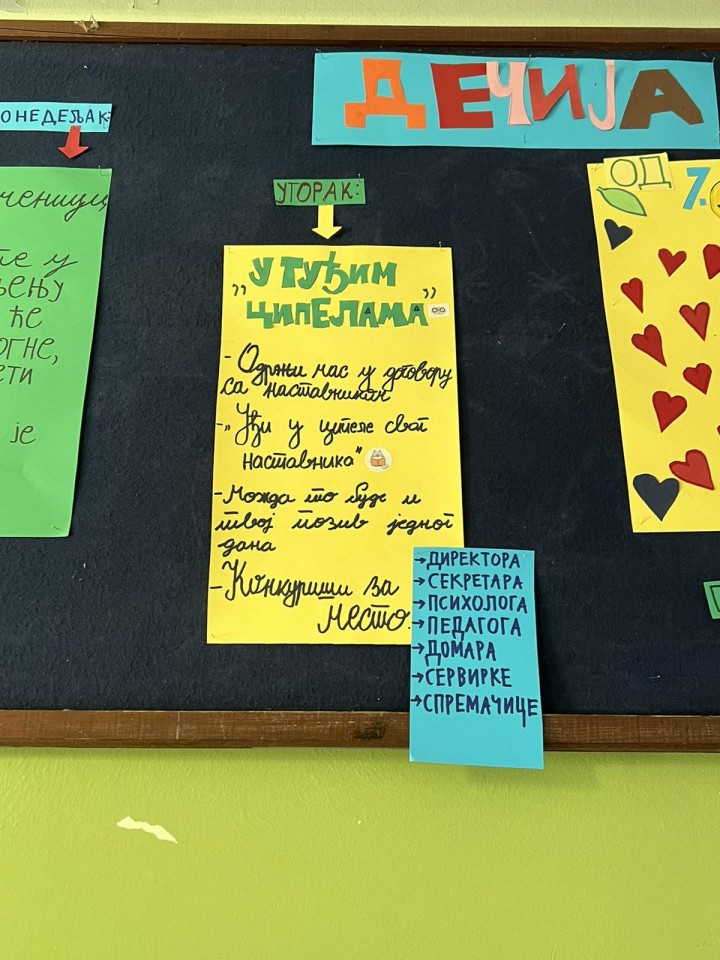 ДЕЧИЈА
ОНЕДЕЉАК:
ченици
те у
њењу
ће
ОГНЕ,
ЕТИ
је
УТОРАК:
„У ТУЂИМ
ЦИПЕЛАМА”
- Одржи час у договору
са наставником
- „Уђи у ципеле свог
наставника”
- Можда то буде и
твој позив једног
дана
- Конкуриши за
место:
→ДИРЕКТОРА
→СЕКРЕТАРА
→ПСИХОЛОГА
→ПЕДАГОГА
→ДОМАРА
→СЕРВИРКЕ
→СПРЕМАЧИЦЕ
ОД 7.